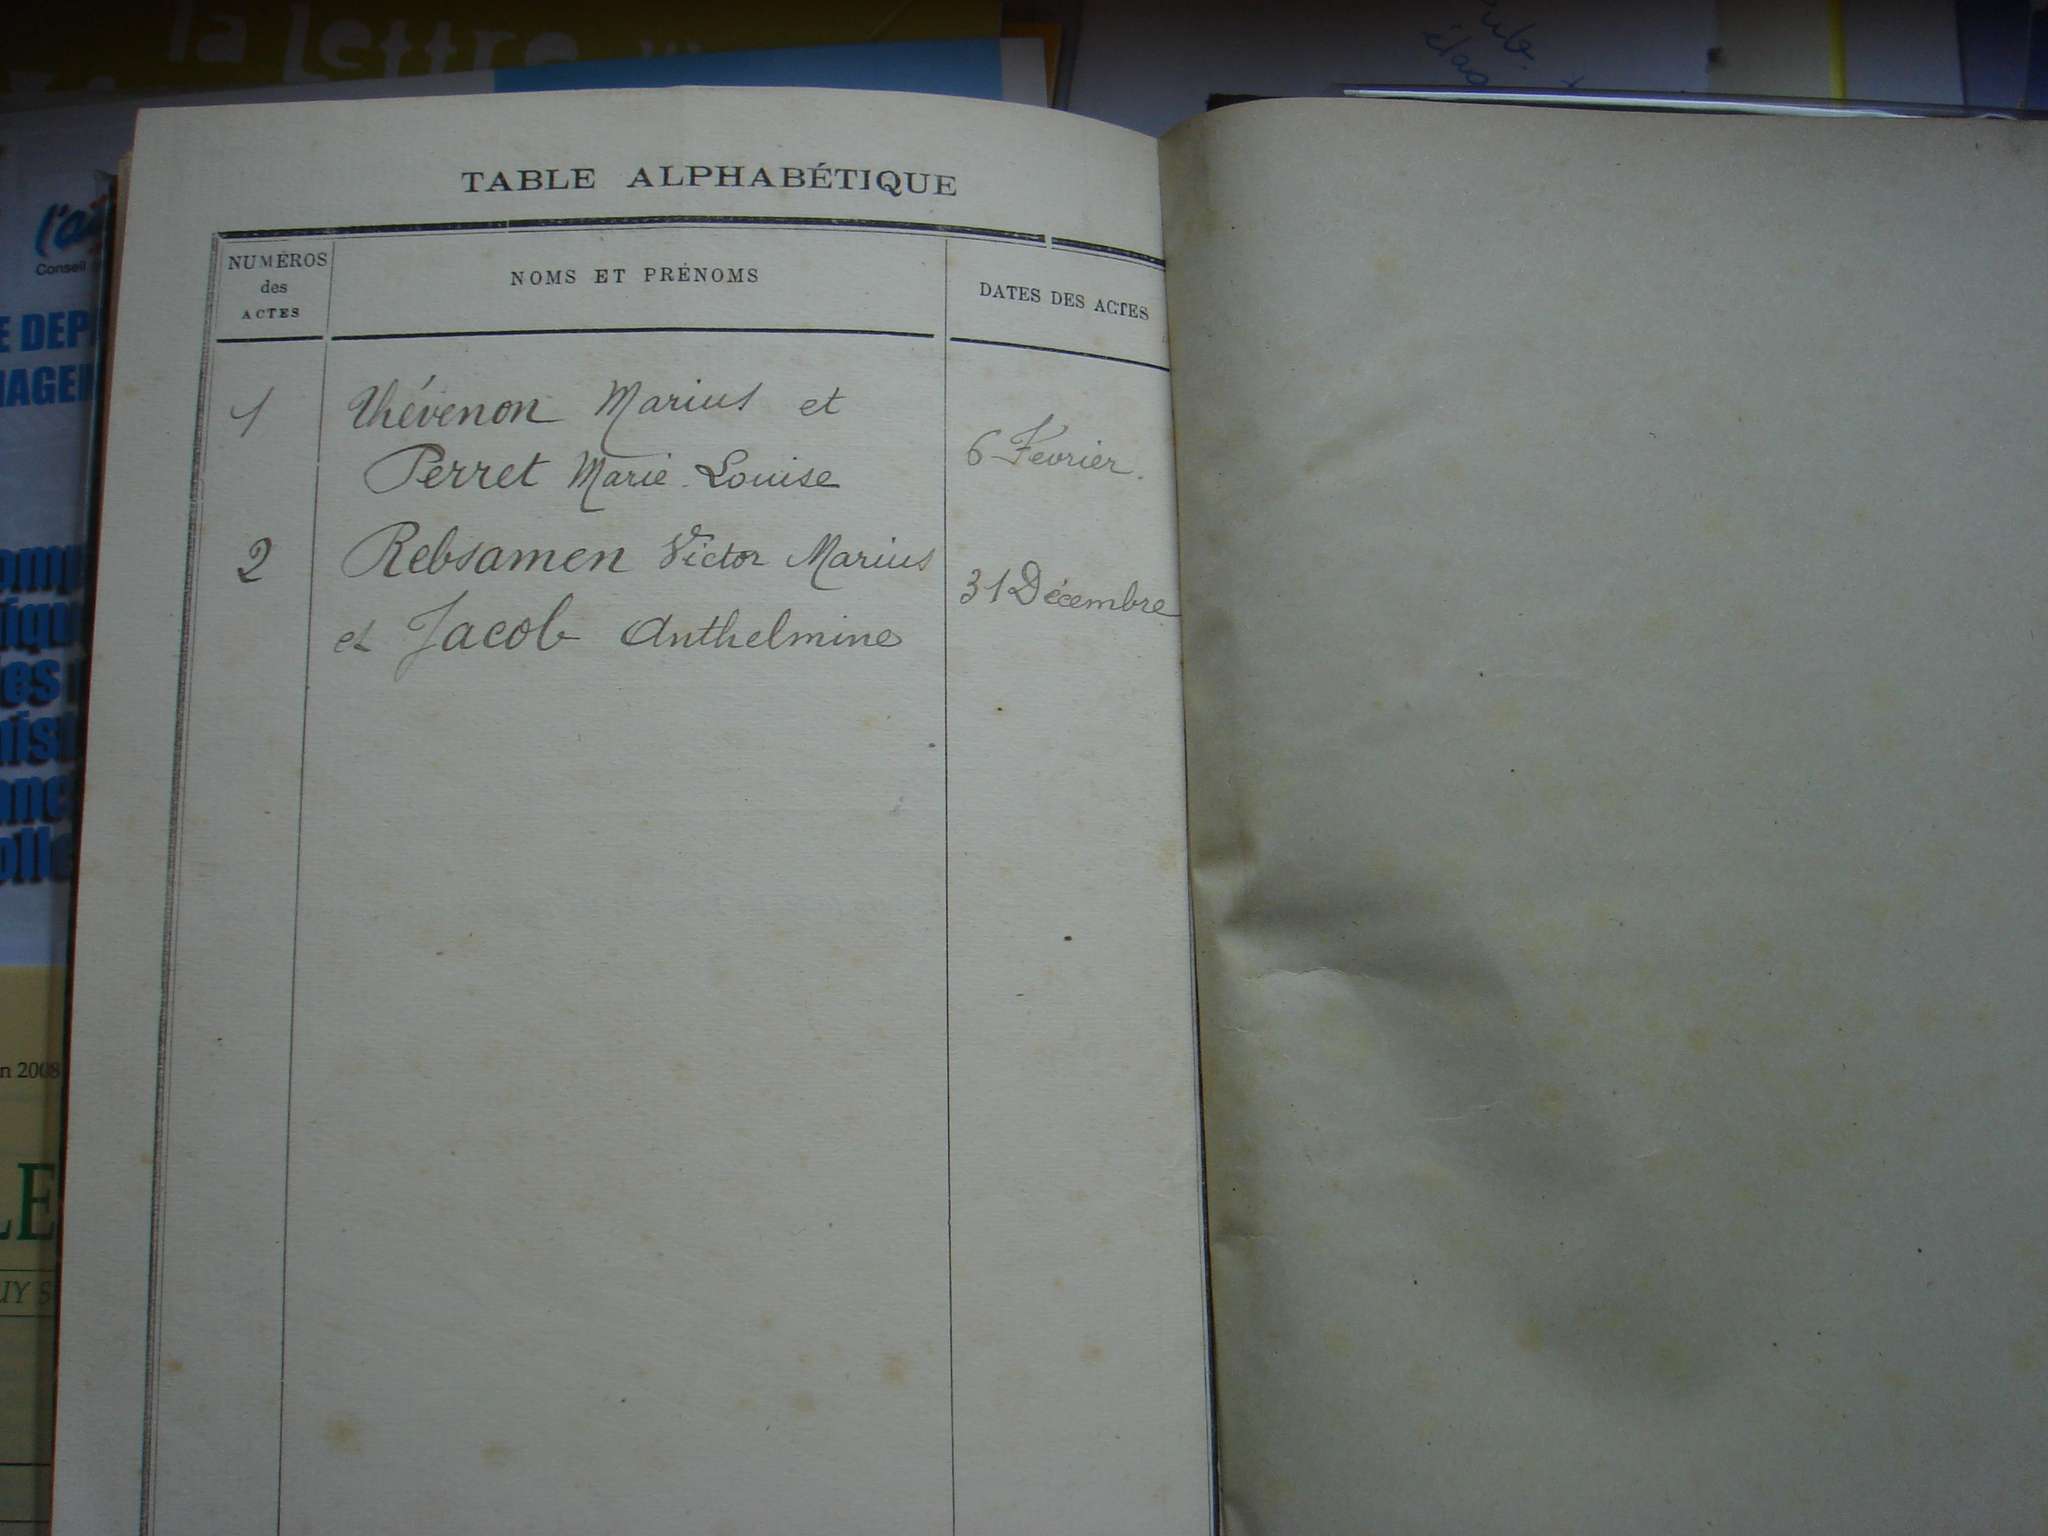 la lettre
TABLE ALPHABÉTIQUE
NUMÉROS
des
ACTES
NOMS ET PRÉNOMS
DATES DES ACTES
1
Thévenon Marius et
Perret Marie Louise
6 Fevrier.
2
Rebsamen Victor Marius
et Jacob Anthelmine
31 Décembre
l'ai
Conseil
E DEP
AGE
omp
iqu
es
nis
anc
olle
n 2008
LE
UY S